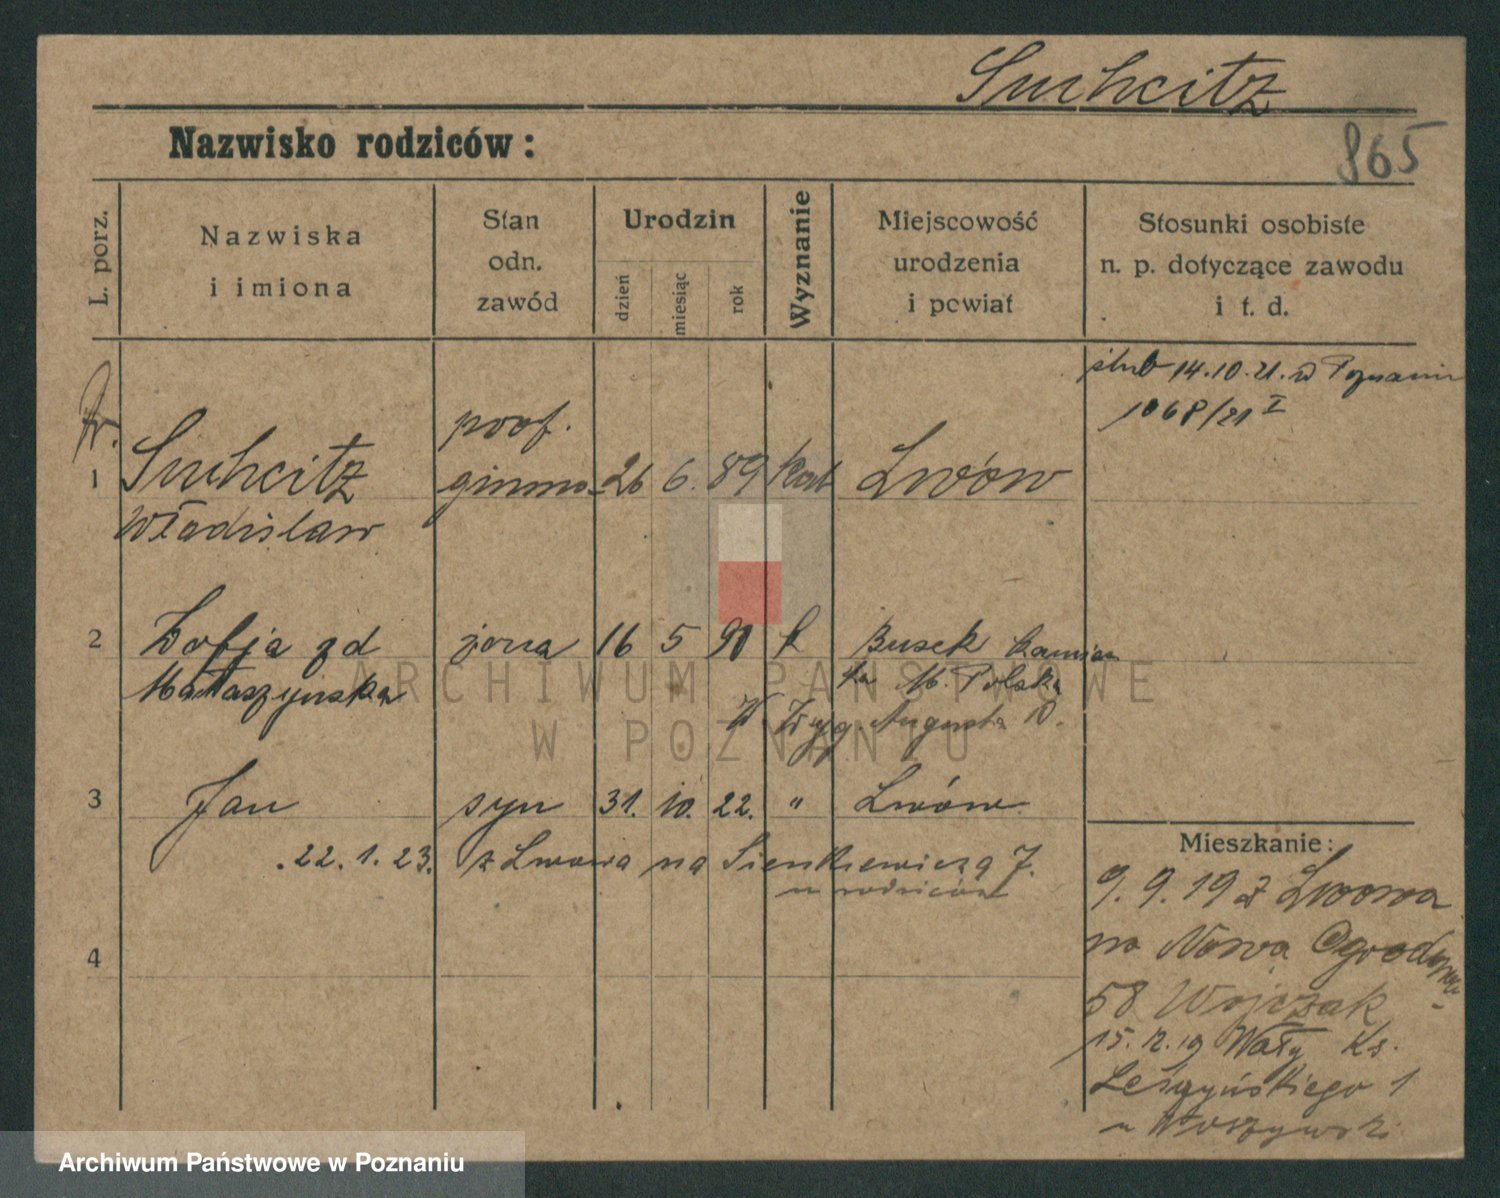 Suchcitz
Nazwisko rodziców:
865
L. porz.
Nazwiska
i imiona
Stan
odn.
zawód
Urodzin
dzień
miesiąc
rok
Wyznanie
Miejscowość
urodzenia
i powiat
Stosunki osobiste
n. p. dotyczące zawodu
i t. d.
ślub 14.10.21. w Poznaniu
1068/21 I
1
Suchcitz
Władisław
prof.
gimna.
26 6. 89 Kat
Lwów
2
Zofja zd
Mataszyńska
żona
16 5 90 k
Busek
M. Polska
Zyg. Augusta 10.
3
Jan
syn
31. 10. 22. "
Lwów
22. 1. 23. z Lwowa na Sienkiewicza 7.
u rodziców
4
Mieszkanie:
9. 9. 19 z Lwowa
na Nowa Ogrodowa
58 Wojczak
15. 12. 19 Wały Ks.
Leszczyńskiego 1
u
ARCHIWUM PAŃSTWOWE
W POZNANIU
Archiwum Państwowe w Poznaniu